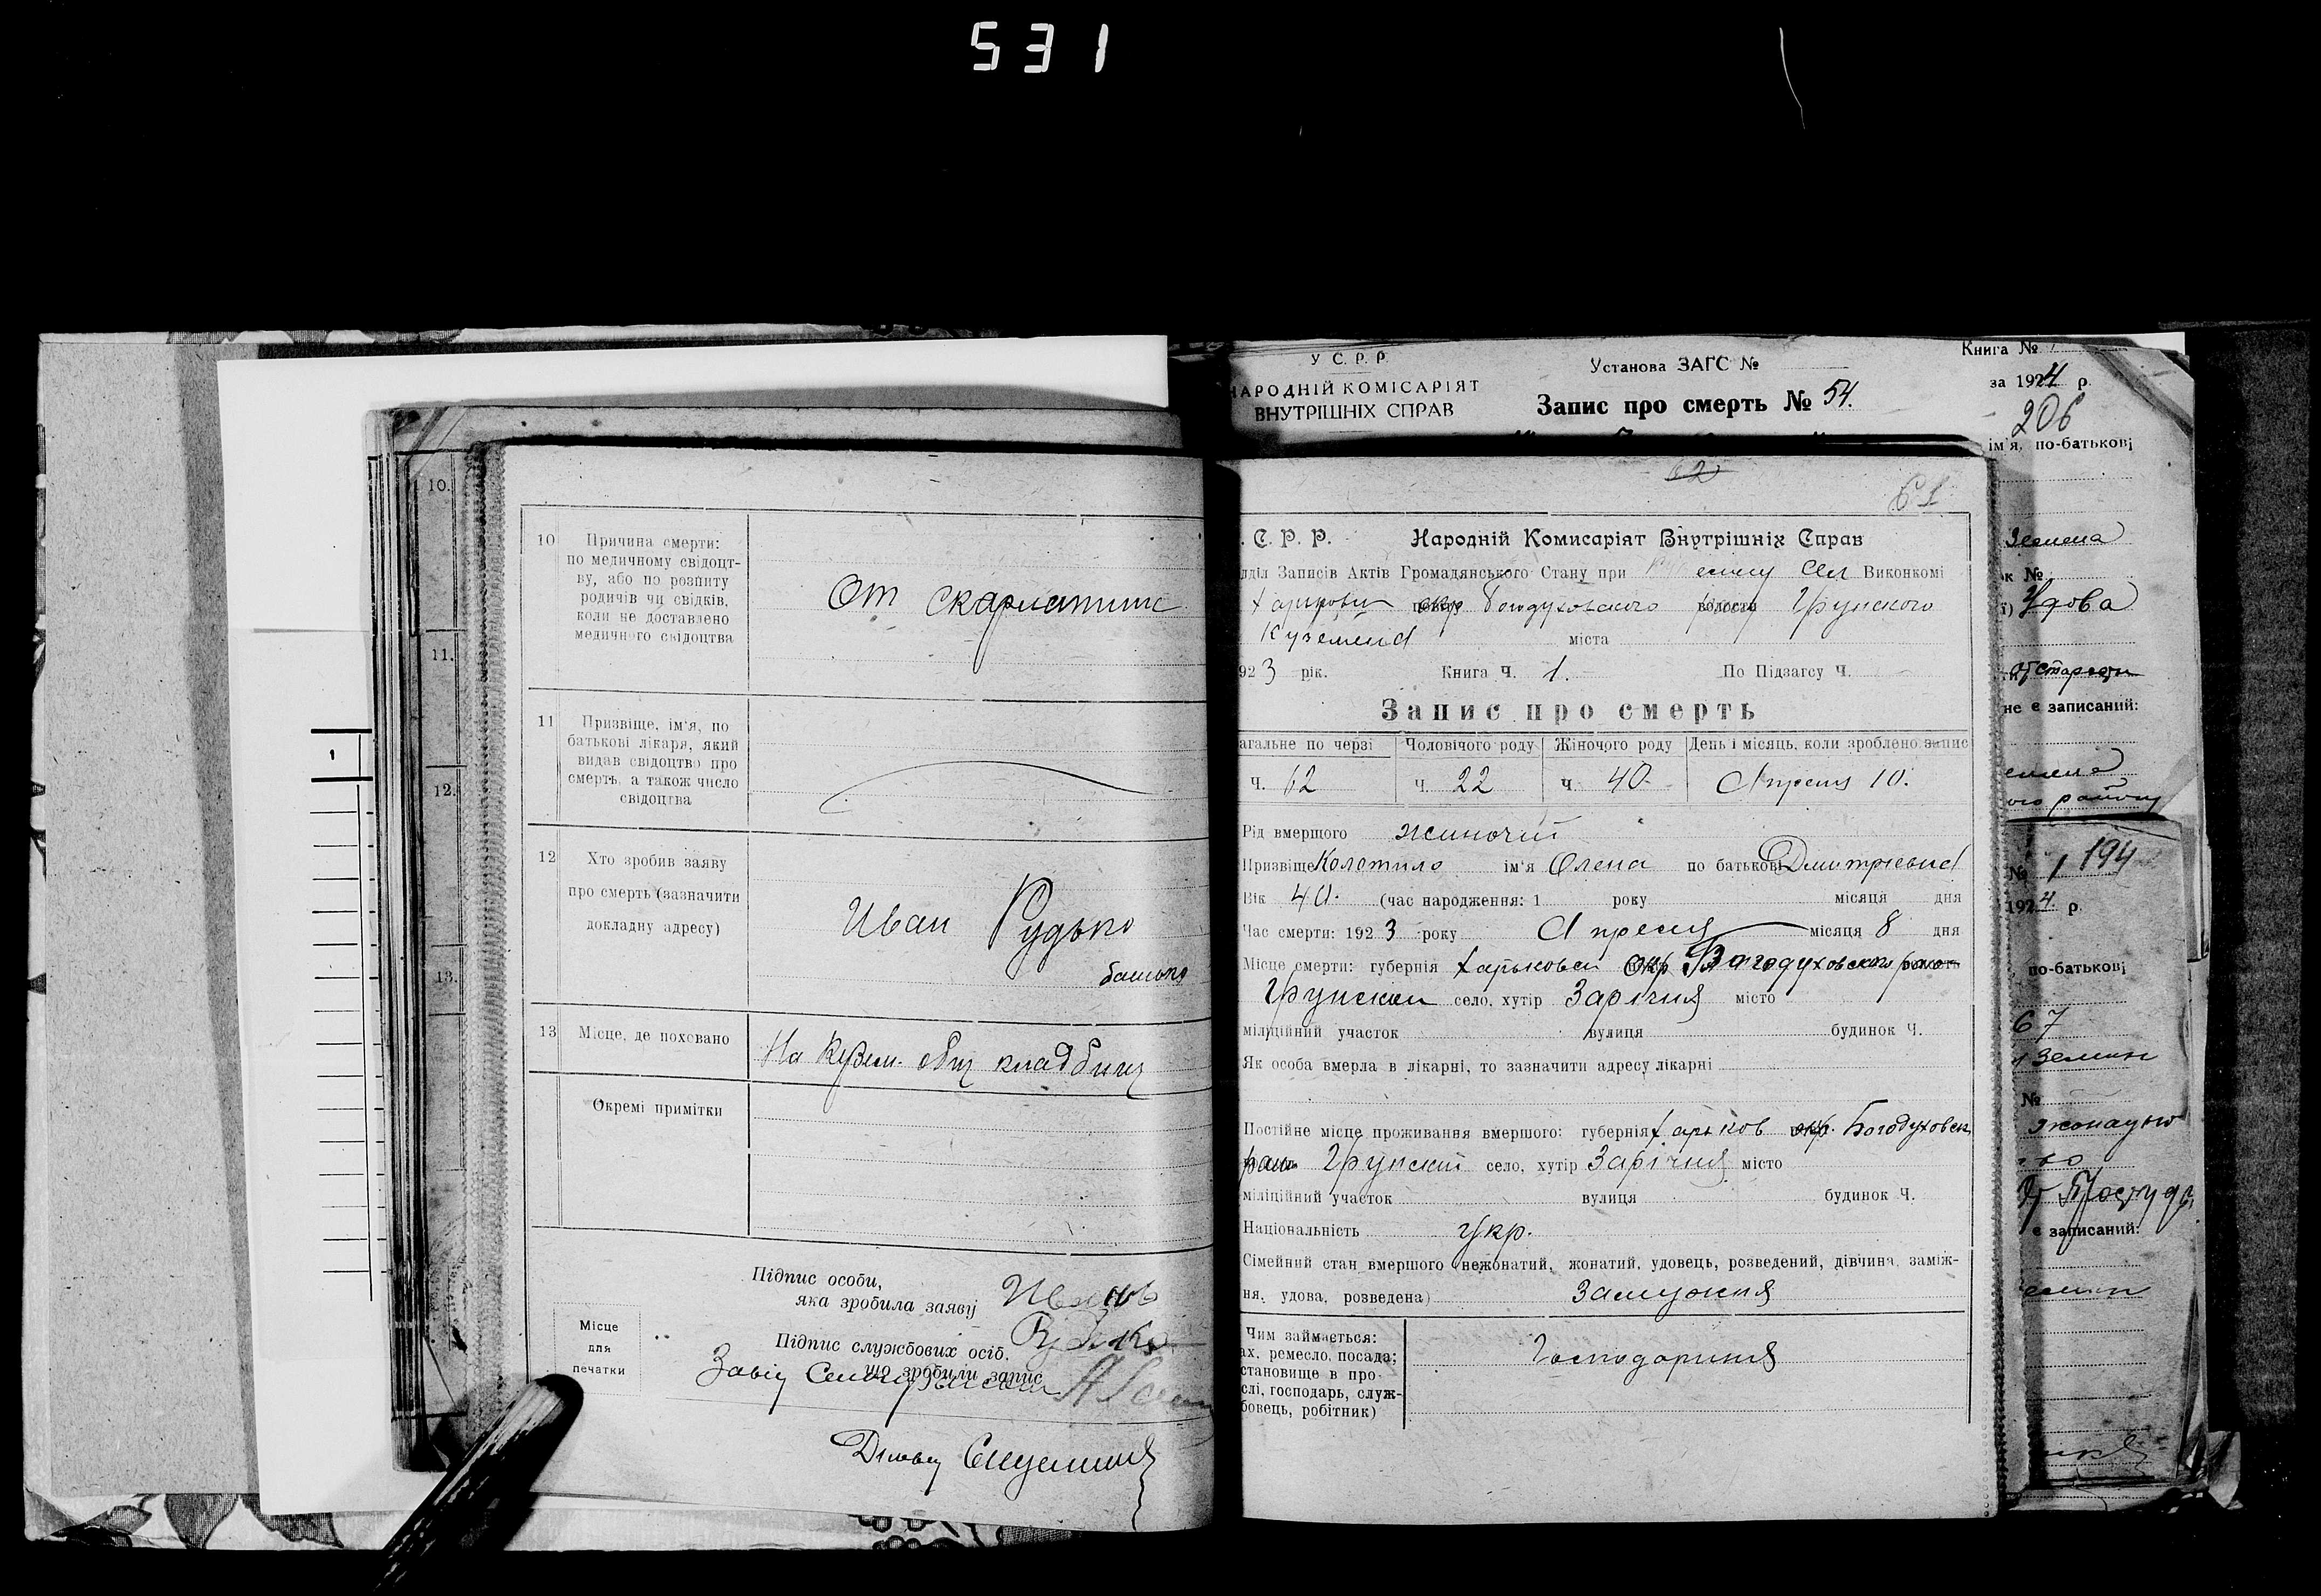 531
10.
11.
12.
13.
1
10 Причина смерти:
по медичному свідоцт-
ву, або по розпиту
родичів чи свідків,
коли не доставлено
медичного свідоцтва
От скарлатини
11 Призвіще, ім'я, по
батькові лікаря, який
видав свідоцтво про
смерть, а також число
свідоцтва
12 Хто зробив заяву
про смерть (зазначити
докладну адресу)
Иван Рудько
батько
13 Місце, де поховано
На Кузем. общ кладбищ
Окремі примітки
Підпис особи,
яка зробила заяву
Иванъ
Рудько
Підпис службових осіб,
що зробили запис
Місце
для
печатки
У С. Р. Р.
НАРОДНІЙ КОМІСАРІЯТ
ВНУТРІШНІХ СПРАВ
Установа ЗАГС №
Запис про смерть № 54.
Книга №
за 1924 р.
206
ім'я, по-батькові
62
61
. С. Р. Р. Народній Комисаріят Внутрішніх Справ
ідділ Записів Актів Громадянського Стану при Сел Виконкомі
окр Богодуховского волости Грунского
міста
923 рік. Книга Ч. 1. По Підзагсу Ч.
Запис про смерть
агальне по черзі Чоловічого роду Жіночого роду День і місяць, коли зроблено запис
Ч. 62 Ч. 22 Ч. 40. Апреля 10.
Рід вмершого жиночий
Призвіще Колотило ім'я Олена по батькові Дмитрієвна
Вік 40. (час народження: 1 року місяця дня
Час смерти: 1923 року Апреля місяця 8 дня
Місце смерти: губернія Харьковск окр Богодуховского
Грунский село, хутір Зарічня місто
міліційний участок вулиця будинок Ч.
Як особа вмерла в лікарні, то зазначити адресу лікарні
Постійне місце проживання вмершого: губернія Харьков окр. Богодуховск
Грунский село, хутір Зарічня місто
міліційний участок вулиця будинок Ч.
Національність Укр.
Сімейний стан вмершого нежонатий, жонатий, удовець, розведений, дівчина, заміж-
ня, удова, розведена) Замужня
Чим займається:
ах, ремесло, посада;
становище в про-
слі, господарь, служ-
бовець, робітник)
Господариня
к №
Удова
От старости
не є записаний:
ого району
№ 1 194
1924. р.
по-батькові
67
№
є записаний: